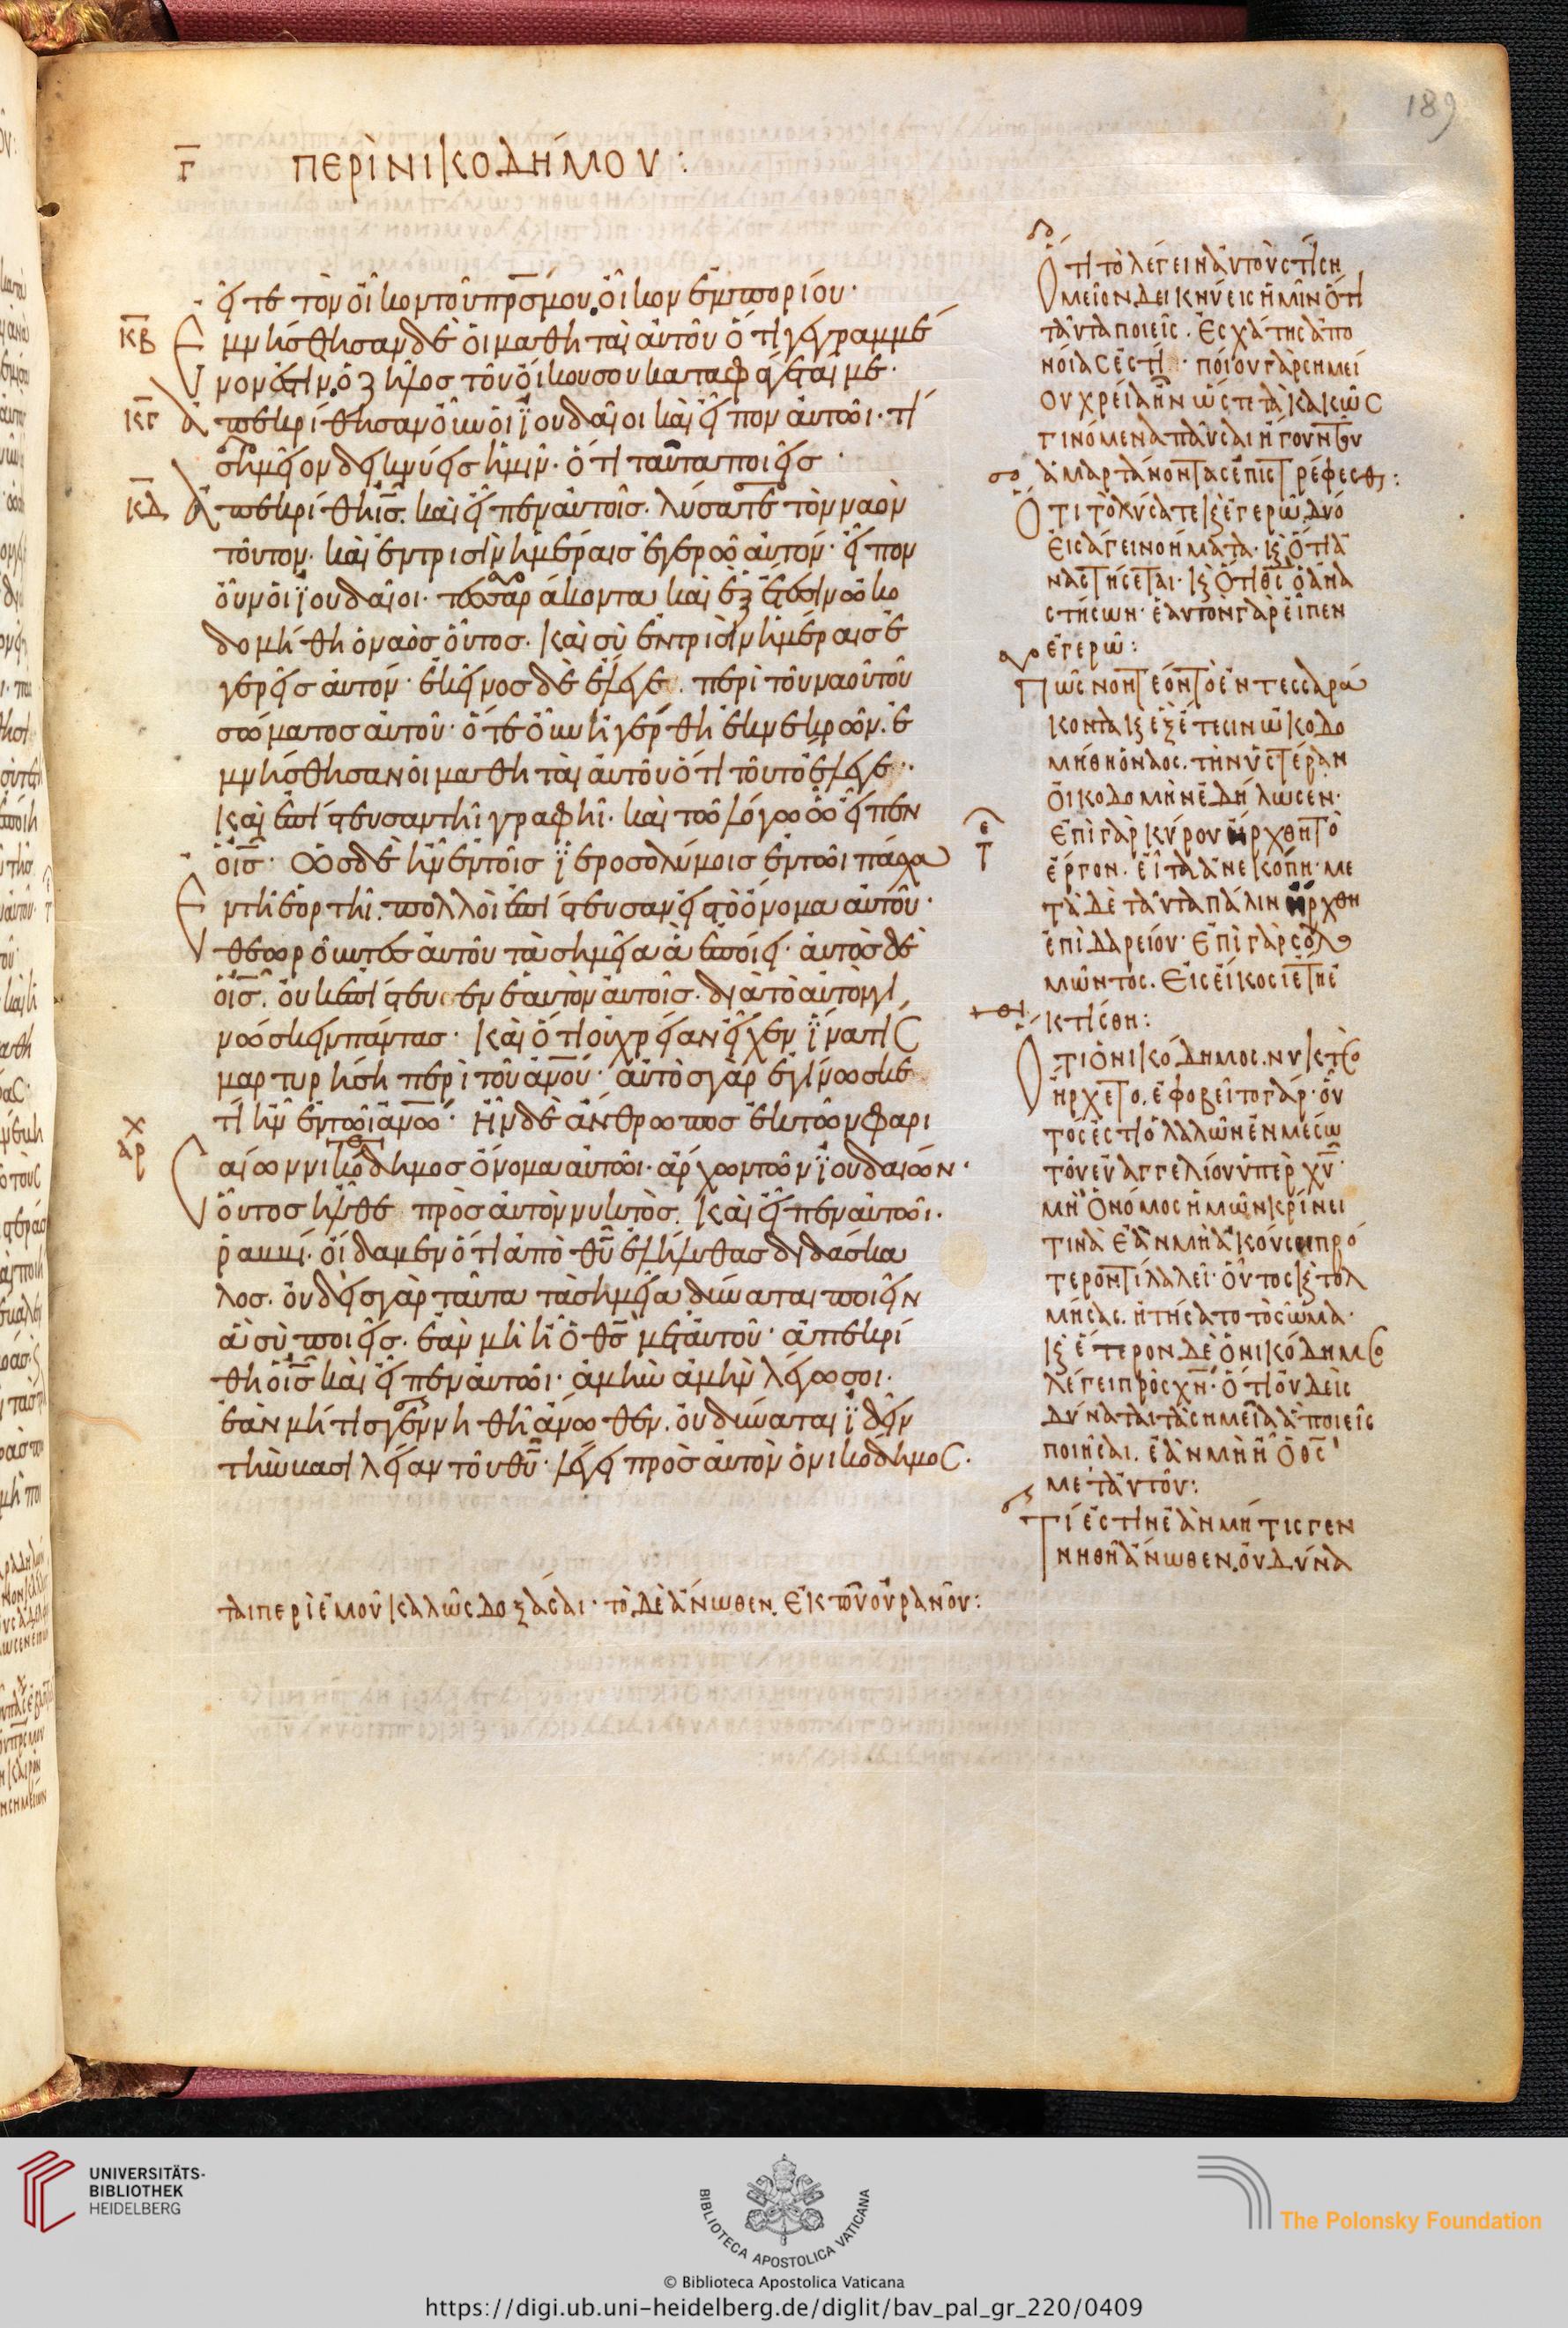 189
γ̅ ΠΕΡῚ ΝΙΚΟΔΉΜΟΥ:
εῖτε τὸν οἶκον τοῦ πρ̅σ μου, οἶκον ἐμπορίου·
ΚΒ Ἐμνήσθησαν δὲ οἱ μαθηταὶ αὐτοῦ ὅτι γεγραμμέ
νον ἐστίν, ὁ ζῆλος τοῦ οἴκου σου καταφάγεταί με·
ΚΓ ἀπεκρίθησαν οὖν οἱ ϊουδαῖοι καὶ εἶπον αὐτῶι· τί
σημεῖον δεικνύεις ἡμῖν· ὅτι ταῦτα ποιεῖς·
ΚΔ ἀπεκρίθη ι̅ς̅. καὶ εἶπεν αὐτοῖς· λύσατε τὸν ναὸν
τοῦτον· καὶ ἐν τρισὶν ἡμέραις ἐγερῶ αὐτόν· εἶπον
οὖν οἱ ϊουδαῖοι· τεσσαράκοντα καὶ ἓξ ἔτεσιν ὠκο
δομήθη ὁ ναὸς οὗτος· καὶ σὺ ἐν τρισὶν ἡμέραις ἐ
γερεῖς αὐτόν· ἐκεῖνος δὲ ἔλεγε. περὶ τοῦ ναοῦ τοῦ
σώματος αὐτοῦ· ὅτε οὖν ἠγέρθη ἐκ νεκρῶν. ἐ
μνήσθησαν οἱ μαθηταὶ αὐτοῦ ὅτι τοῦτο ἔλεγε·
καὶ ἐπίστευσαν τῆι γραφῆι· καὶ τῶι λόγωι ὧι εἶπεν
ὁ ι̅ς̅· Ὡς δὲ ἦν ἐν τοῖς ϊεροσολύμοις ἐν τῶι πάσχα
ἐν τῆι ἑορτῆι. πολλοὶ ἐπίστευσαν εἰς τὸ ὄνομα αὐτοῦ·
θεωροῦντες αὐτοῦ τὰ σημεῖα ἃ ἐποίει· αὐτὸς δὲ
ὁ ι̅ς̅. οὐκ ἐπίστευσεν ἑαυτὸν αὐτοῖς. διὰ τὸ αὐτὸν γι
νώσκειν πάντας· καὶ ὅτι οὐ χρείαν εἶχεν ϊνα τίς
μαρτυρήσῃ περὶ τοῦ α̅ν̅ο̅υ̅· αὐτὸς γὰρ ἐγίνωσκε
τί ἦν ἐν τῶι α̅ν̅ω̅· Ἦν δὲ ἄνθρωπος ἐκ τῶν φαρι
σαίων νικόδημος ὄνομα αὐτῶι. ἄρχων τῶν ϊουδαίων·
οὗτος ἦλθε πρὸς αὐτὸν νυκτὸς. καὶ εἶπεν αὐτῶι.
ῥαββί· οἴδαμεν ὅτι ἀπὸ θ̅υ̅ ἐλήλυθας διδάσκα
λος. οὐδεὶς γὰρ ταῦτα τὰ σημεῖα δύναται ποιεῖν
ἃ σὺ ποιεῖς. ἐὰν μὴ ἦ ὁ θ̅ς̅ μετ' αὐτοῦ· ἀπεκρί
θη ὁ ι̅ς̅ καὶ εἶπεν αὐτῶι· ἀμὴν ἀμὴν λέγω σοι.
ἐὰν μή τις γεννηθῆ ἄνωθεν. οὐ δύναται ϊδεῖν
τὴν βασιλείαν τοῦ θ̅υ̅· λέγει πρὸς αὐτὸν ὁ νικόδημος.
ὅτι τὸ λέγειν αὐτοὺς τί ση
μεῖον δεικνύεις ἡμῖν ὅτι
ταῦτα ποιεῖς. ἐσχάτης ἀπο
νοίας ἐστί· ποίου γὰρ σημεί
ου χρεία ἦν ὥστε τὰ κακῶς
γινόμενα παῦσαι ἤγουν τοὺς
ἁμαρτάνοντας ἐπιστρέφεσθαι:
ὅτι τὸ λύσατε καὶ ἐγερῶ, δύο
εἰσάγει νοήματα· καὶ ὅτι ἀ
ναστήσεται· καὶ ὅτι θ̅ς̅ ὁ ἀνα
στήσων· ἑαυτὸν γὰρ εἶπεν
ἐγερῶ:
Πῶς νοητέον τὸ ἐν τεσσαρά
κοντα καὶ ἓξ ἔτεσιν ὠκοδο
μήθη ὁ ναὸς. τὴν ὑστέραν
οἰκοδομὴν ἐδήλωσεν·
Ἐπὶ γὰρ κύρου ἤρχθη τὸ
ἔργον. εἶτα ἀνεκόπη· με
τὰ δὲ ταῦτα πάλιν ἤρχθη
ἐπὶ δαρείου· Ἐπὶ γὰρ σολο
μῶντος. Εἰς εἴκοσι ἔτη ἐ
κτίσθη:
ὅτι ὁ νικόδημος. νυκτὸς
ἤρχετο. ἐφοβεῖτο γάρ· οὗ
τός ἐστι ὁ λαλῶν ἐν μέσω
τῶν εὐαγγελίων ὑπὲρ χ̅υ̅·
μὴ ὁ νόμος ἡμῶν κρίνει
τινὰ ἐὰν μὴ ἀκούσει πρό
τερον τί λαλεῖ· οὗτος καὶ τολ
μήσας. ἠτήσατο τὸ σῶμα·
καὶ ἕτερον δὲ ὁ νικόδημος
λέγει πρὸς χ̅ν̅· ὅτι οὐδεὶς
δύναται τὰ σημεῖα ἃ ποιεῖς
ποιῆσαι. ἐὰν μὴ ἦ ὁ θ̅ς̅
μετ' αὐτοῦ:
Τί ἐστιν ἐὰν μή τις γεν
νηθῆ ἄνωθεν, οὐ δύνα
ται περὶ ἐμοῦ καλῶς δοξάσαι· τὸ δὲ ἄνωθεν. ἐκ τοῦ οὐρανοῦ:
UNIVERSITÄTS-
BIBLIOTHEK
HEIDELBERG
BIBLIOTECA APOSTOLICA VATICANA
The Polonsky Foundation
© Biblioteca Apostolica Vaticana
https://digi.ub.uni-heidelberg.de/diglit/bav_pal_gr_220/0409